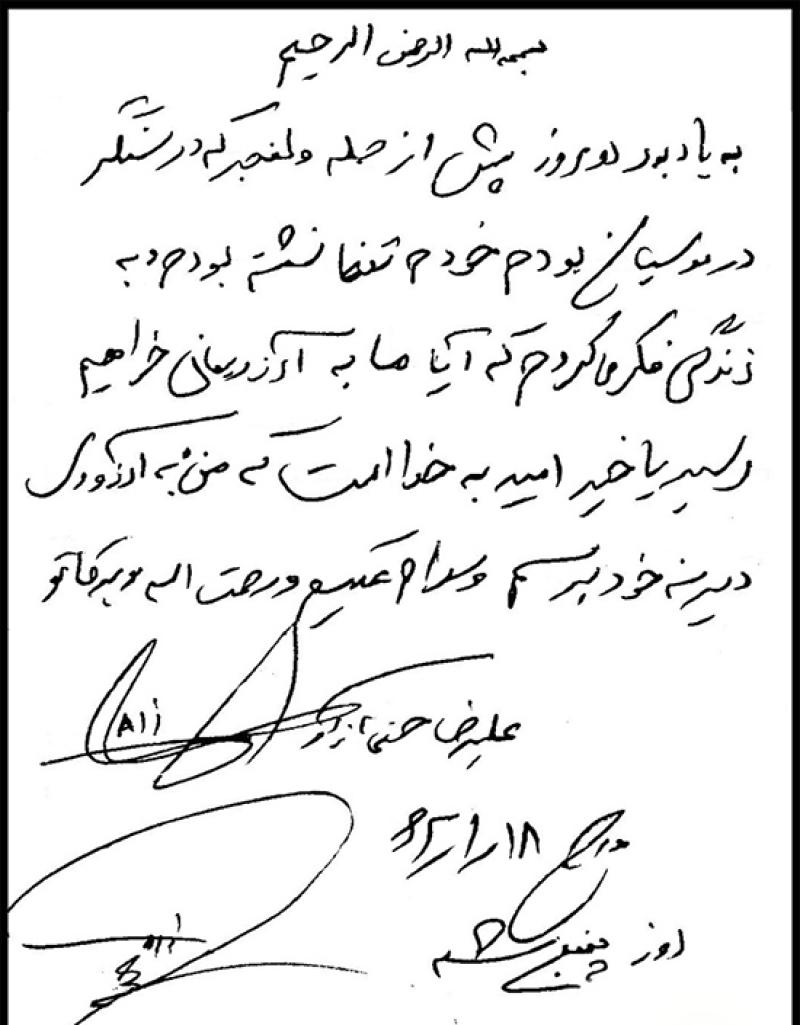 بسم الله الرحمن الرحیم
به یاد بود دو روز پیش از حمله والفجر که در سنگر
در موسیان بودم خودم تنها نشسته بودم و به
زندگی فکر می‌کردم که آیا ما به آرزوهایمان خواهیم
رسید یا خیر امید به خدا است که من به آرزوی
دیرینه خود برسم وسلام علیکم ورحمت الله وبرکاتو
علیرضا
Ali
۶۲/۱/۱۸
روز پنجشنبه